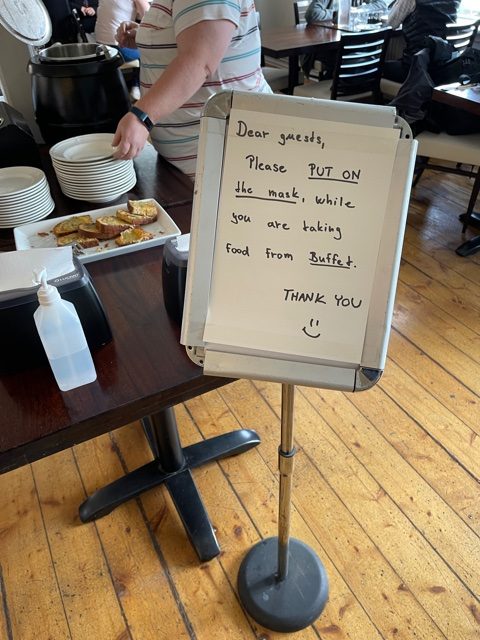 Dear guests,
Please PUT ON
the mask, while
you are taking
food from Buffet.
THANK YOU